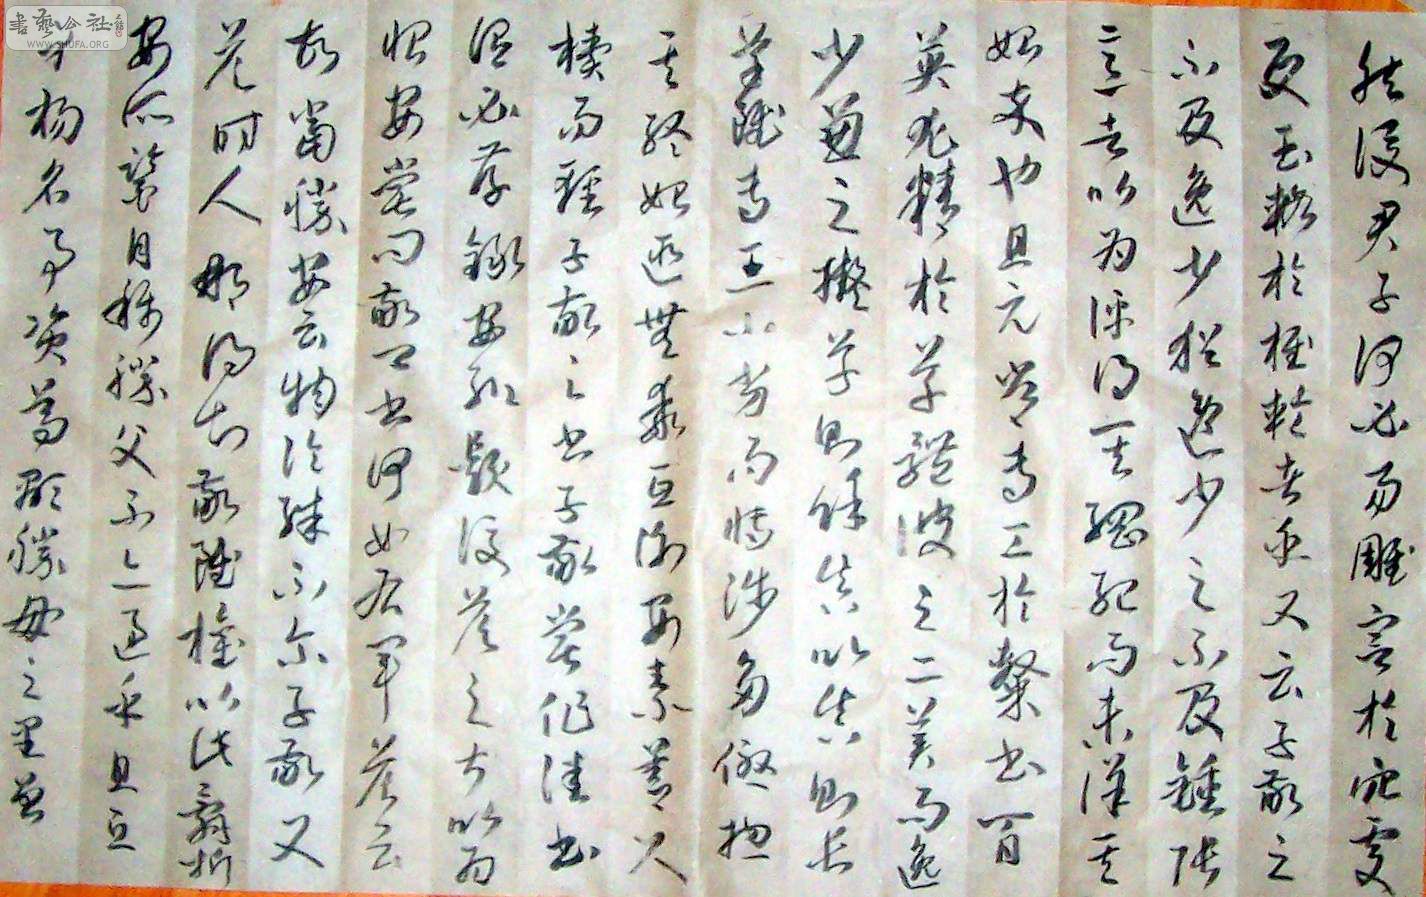 然後君子何必易雕宮於穴處
反玉輅於椎輪者乎又云子敬之
不及逸少猶逸少之不及鍾張
意者以為評得其綱紀而未詳其
始卒也且元常專工於隸書百
英尤精於草體彼之二美而逸
少兼之擬草則餘真比真則長
草雖專工小劣而博涉多優摠
其終始匪無乖互謝安素善尺
櫝而輕子敬之書子敬嘗作佳書
與必存錄安輒題後答之甚以為
恨安嘗問敬卿書何如右軍答云
故當勝安云物論殊不爾子敬又
答時人那得知敬雖權以此辭折
安所鑒自稱勝父不亦過乎且立
身揚名事資尊顯勝母之里曾
書藝公社
WWW.SHUFA.ORG